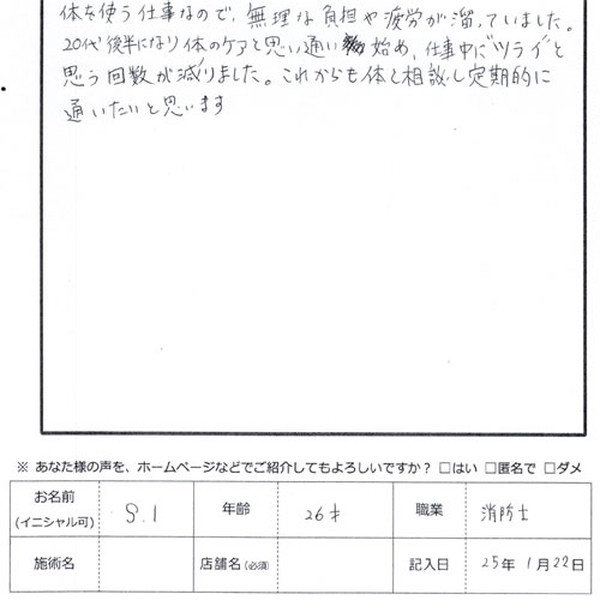 体を使う仕事なので、無理な負担や疲労が溜っていました。
20代後半になり体のケアをと思い通い始め、仕事中に"ツライ"と
思う回数が減りました。これからも体と相談し定期的に
通いたいと思います
※ あなた様の声を、ホームページなどでご紹介してもよろしいですか？ □はい □匿名で □ダメ
お名前 (イニシャル可) S.I 年齢 26才 職業 消防士
施術名 店舗名(必須) 記入日 25年 1月22日